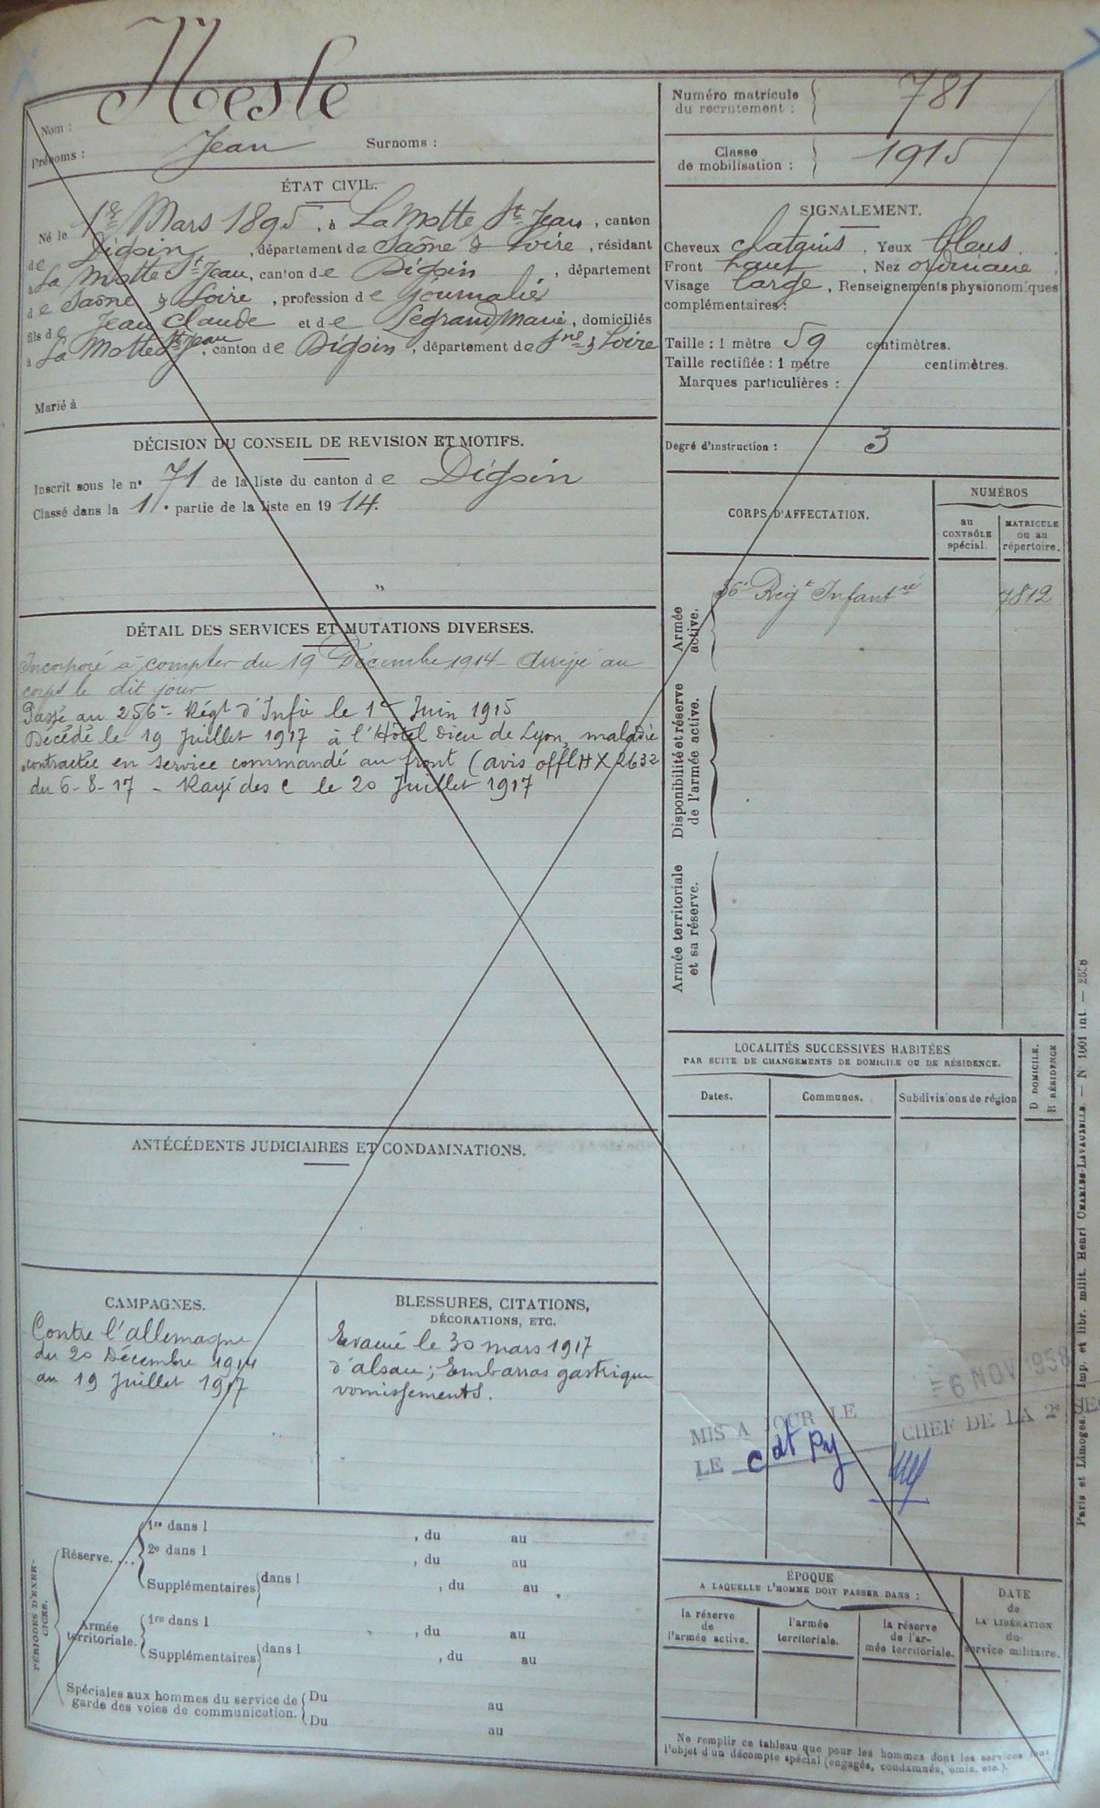 Nom : Nesle
Prénoms : Jean Surnoms :
ÉTAT CIVIL.
Né le 1er Mars 1895, à La Motte St Jean, canton
de Digoin, département de Saône & Loire, résidant
à La Motte St Jean, canton de Digoin, département
de Saône & Loire, profession de Journalier
fils de Jean Claude et de Legrand Marie, domiciliés
à La Motte St Jean, canton de Digoin, département de Sne & Loire
Marié à
DÉCISION DU CONSEIL DE REVISION ET MOTIFS.
Inscrit sous le n° 71 de la liste du canton de Digoin
Classé dans la 1e partie de la liste en 1914.
"
DÉTAIL DES SERVICES ET MUTATIONS DIVERSES.
Incorporé à compter du 19 Décembre 1914 - Arrivé au
corps le dit jour
Passé au 256e Régt d'Infie le 1er Juin 1915
Décédé le 19 Juillet 1917 à l'Hôtel Dieu de Lyon, maladie
contractée en service commandé au front (avis offl HX 2632
du 6-8-17 - Rayé des C le 20 Juillet 1917
ANTÉCÉDENTS JUDICIAIRES ET CONDAMNATIONS.
CAMPAGNES.
Contre l'allemagne
du 20 Décembre 1914
au 19 Juillet 1917
BLESSURES, CITATIONS,
DÉCORATIONS, ETC.
Evacué le 30 mars 1917
d'alsace ; Embarras gastrique
vomissements.
PÉRIODES D'EXERCICES.
Réserve....
1re dans l , du au
2e dans l , du au
Supplémentaires dans l , du au .
Armée territoriale.
1re dans l , du au
Supplémentaires dans l , du au
Spéciales aux hommes du service de
garde des voies de communication.
Du au
Du au
Numéro matricule
du recrutement : 781
Classe
de mobilisation : 1915
SIGNALEMENT.
Cheveux chatains, Yeux bleus
Front haut, Nez ordinaire ;
Visage large, Renseignements physionomiques
complémentaires :
Taille : 1 mètre 59 centimètres.
Taille rectifiée : 1 mètre centimètres.
Marques particulières :
Degré d'instruction : 3
CORPS D'AFFECTATION.
NUMÉROS
au
CONTRÔLE
spécial.
MATRICULE
ou au
répertoire.
Armée
active.
Régt Infanterie 7812
Disponibilité et réserve
de l'armée active.
Armée territoriale
et sa réserve.
LOCALITÉS SUCCESSIVES HABITÉES
PAR SUITE DE CHANGEMENTS DE DOMICILE OU DE RÉSIDENCE.
Dates.
Communes.
Subdivisions de région
D DOMICILE.
R RÉSIDENCE
6 NOV 1958
MIS A JOUR LE
LE
CHEF DE LA 2e
ÉPOQUE
A LAQUELLE L'HOMME DOIT PASSER DANS :
la réserve
de
l'armée active.
l'armée
territoriale.
la réserve
de l'ar-
mée territoriale.
DATE
de
LA LIBÉRATION
du
service militaire.
Ne remplir ce tableau que pour les hommes dont les services font
l'objet d'un décompte spécial (engagés, condamnés, omis, etc.).
Paris et Limoges. Imp. et libr. milit. Henri CHARLES-LAVAUZELLE. — N 1661 int.